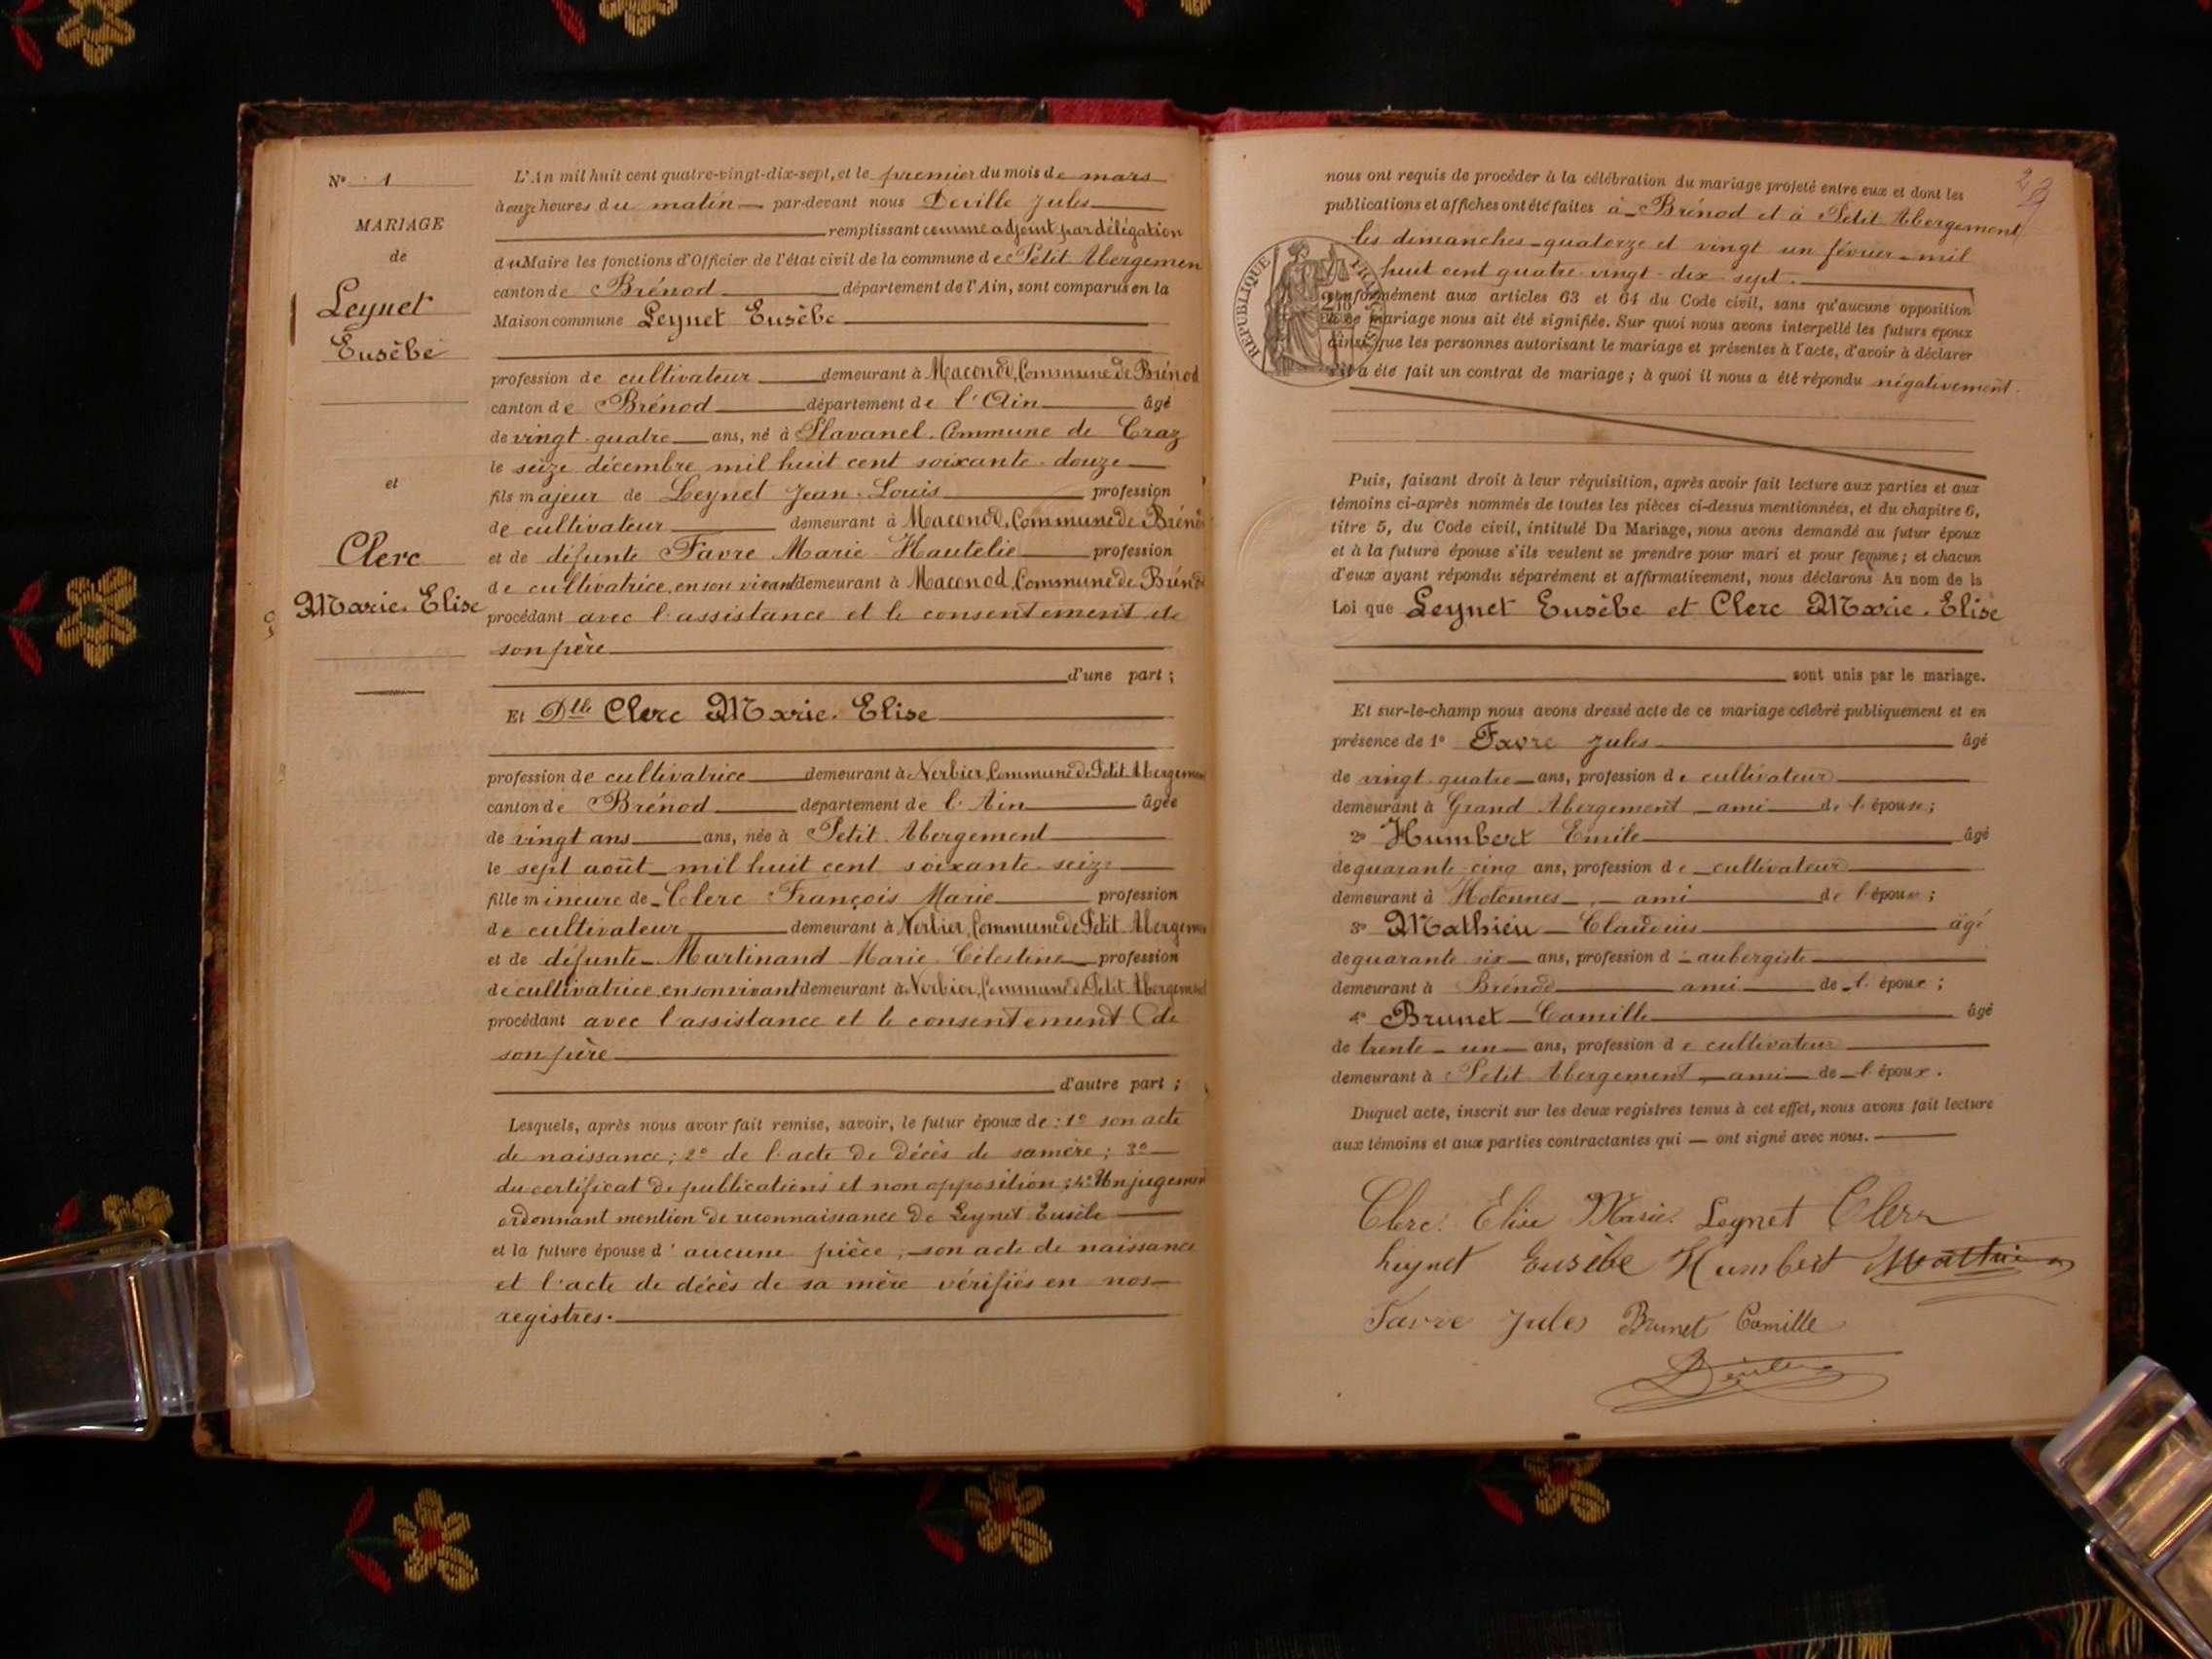 N° 1
MARIAGE
de
Leynet
Eusèbe
et
Clerc
Marie-Elise
L'An mil huit cent quatre-vingt-dix-sept, et le premier du mois de mars
à onze heures du matin par-devant nous Deville Jules
remplissant comme adjoint par délégation
du Maire les fonctions d'Officier de l'état civil de la commune de Petit Abergemen
canton de Brénod département de l'Ain, sont comparus en la
Maison commune Leynet Eusèbe
profession de cultivateur demeurant à Maconod, Commune de Brénod
canton de Brénod département de l'Ain âgé
de vingt-quatre ans, né à Plavanel. Commune de Craz
le seize décembre mil huit cent soixante-douze
fils majeur de Leynet Jean-Louis profession
de cultivateur demeurant à Maconod, Commune de Bréno
et de défunte Favre Marie Hautelie profession
de cultivatrice, en son vivant demeurant à Maconod, Commune de Bréno
procédant avec l'assistance et le consentement de
son père
d'une part ;
Et Dlle Clerc Marie-Elise
profession de cultivatrice demeurant à Nerbier, Commune de Petit Abergemen
canton de Brénod département de l'Ain âgée
de vingt ans ans, née à Petit Abergement
le sept août mil huit cent soixante-seize
fille mineure de Clerc François Marie profession
de cultivateur demeurant à Nerbier, Commune de Petit Abergeme
et de défunte Martinand Marie Célestine profession
de cultivatrice en son vivant demeurant à Nerbier, Commune de Petit Abergement
procédant avec l'assistance et le consentement de
son père
d'autre part ;
Lesquels, après nous avoir fait remise, savoir, le futur époux de : 1° son acte
de naissance ; 2° de l'acte de décès de sa mère ; 3°
du certificat de publications et non opposition ; 4° Un jugement
ordonnant mention de reconnaissance de Leynet Eusèbe
et la future épouse d'aucune pièce, son acte de naissance
et l'acte de décès de sa mère vérifiés en nos
registres.
nous ont requis de procéder à la célébration du mariage projeté entre eux et dont les
publications et affiches ont été faites à Brénod et à Petit Abergement
les dimanches quatorze et vingt un février mil
huit cent quatre-vingt-dix-sept.
RÉPUBLIQUE FRANÇAISE
conformément aux articles 63 et 64 du Code civil, sans qu'aucune opposition
à ce mariage nous ait été signifiée. Sur quoi nous avons interpellé les futurs époux
ainsi que les personnes autorisant le mariage et présentes à l'acte, d'avoir à déclarer
s'il a été fait un contrat de mariage ; à quoi il nous a été répondu négativement.
Puis, faisant droit à leur réquisition, après avoir fait lecture aux parties et aux
témoins ci-après nommés de toutes les pièces ci-dessus mentionnées, et du chapitre 6,
titre 5, du Code civil, intitulé Du Mariage, nous avons demandé au futur époux
et à la future épouse s'ils veulent se prendre pour mari et pour femme ; et chacun
d'eux ayant répondu séparément et affirmativement, nous déclarons Au nom de la
Loi que Leynet Eusèbe et Clerc Marie-Elise
sont unis par le mariage.
Et sur-le-champ nous avons dressé acte de ce mariage célébré publiquement et en
présence de 1° Favre Jules âgé
de vingt-quatre ans, profession de cultivateur
demeurant à Grand Abergement ami de l'épouse ;
2° Humbert Emile âgé
de quarante-cinq ans, profession de cultivateur
demeurant à Hotonnes ami de l'époux ;
3° Mathieu Claudius âgé
de quarante-six ans, profession d' aubergiste
demeurant à Brénod ami de l'époux ;
4° Brunet Camille âgé
de trente-un ans, profession de cultivateur
demeurant à Petit Abergement ami de l'époux.
Duquel acte, inscrit sur les deux registres tenus à cet effet, nous avons fait lecture
aux témoins et aux parties contractantes qui ont signé avec nous.
Clerc Elise Marie Leynet Clerc
Leynet Eusèbe Humbert Mathieu
Favre Jules Brunet Camille
Deville